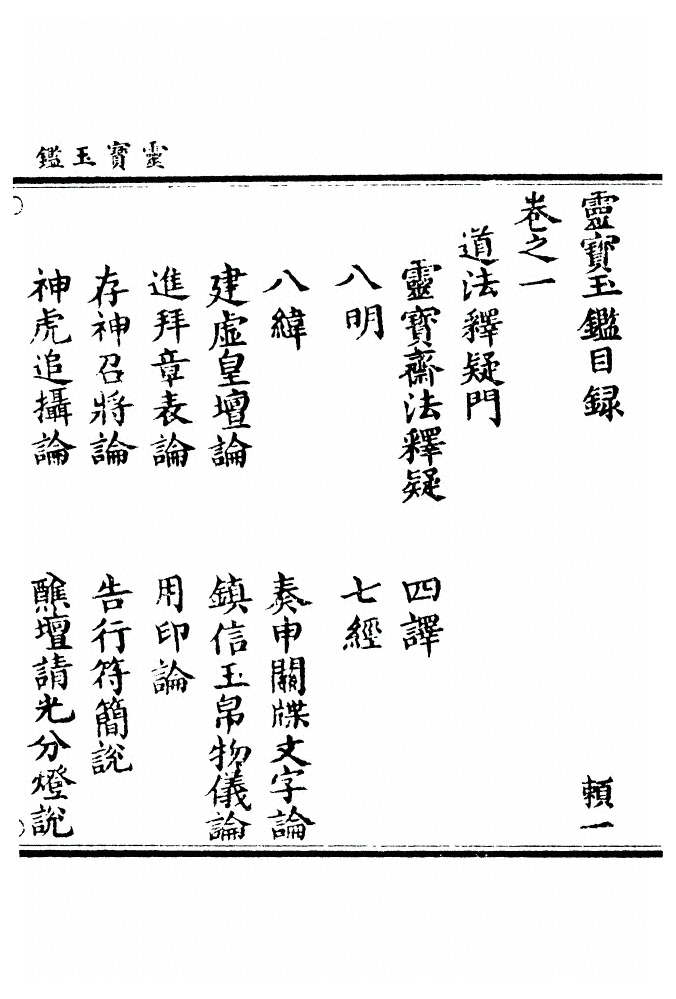 靈寶玉鑑
靈寶玉鑑目録 頼一
卷之一
道法釋疑門
靈寶齋法釋疑 四譯
八明 七經
八緯 奏申關牒文字論
建虛皇壇論 鎮信玉帛物儀論
進拜章表論 用印論
存神召將論 告行符簡說
神虎追攝論 醮壇請光分燈說